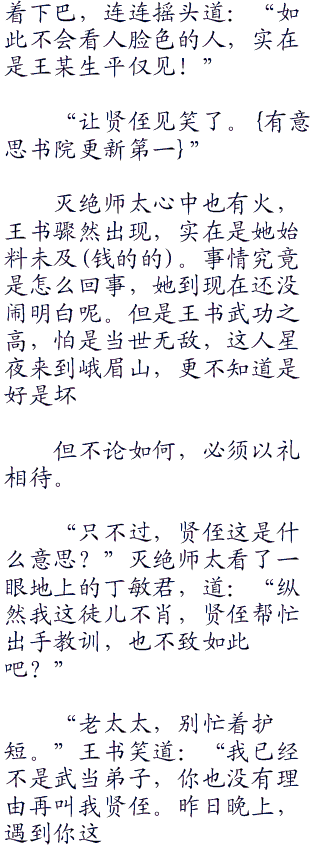 着下巴，连连摇头道：“如
此不会看人脸色的人，实在
是王某生平仅见！”
“让贤侄见笑了。{有意
思书院更新第一}”
灭绝师太心中也有火，
王书骤然出现，实在是她始
料未及(钱的的)。事情究竟
是怎么回事，她到现在还没
闹明白呢。但是王书武功之
高，怕是当世无敌，这人星
夜来到峨眉山，更不知道是
好是坏
但不论如何，必须以礼
相待。
“只不过，贤侄这是什
么意思？”灭绝师太看了一
眼地上的丁敏君，道：“纵
然我这徒儿不肖，贤侄帮忙
出手教训，也不致如此
吧？”
“老太太，别忙着护
短。”王书笑道：“我已经
不是武当弟子，你也没有理
由再叫我贤侄。昨日晚上，
遇到你这